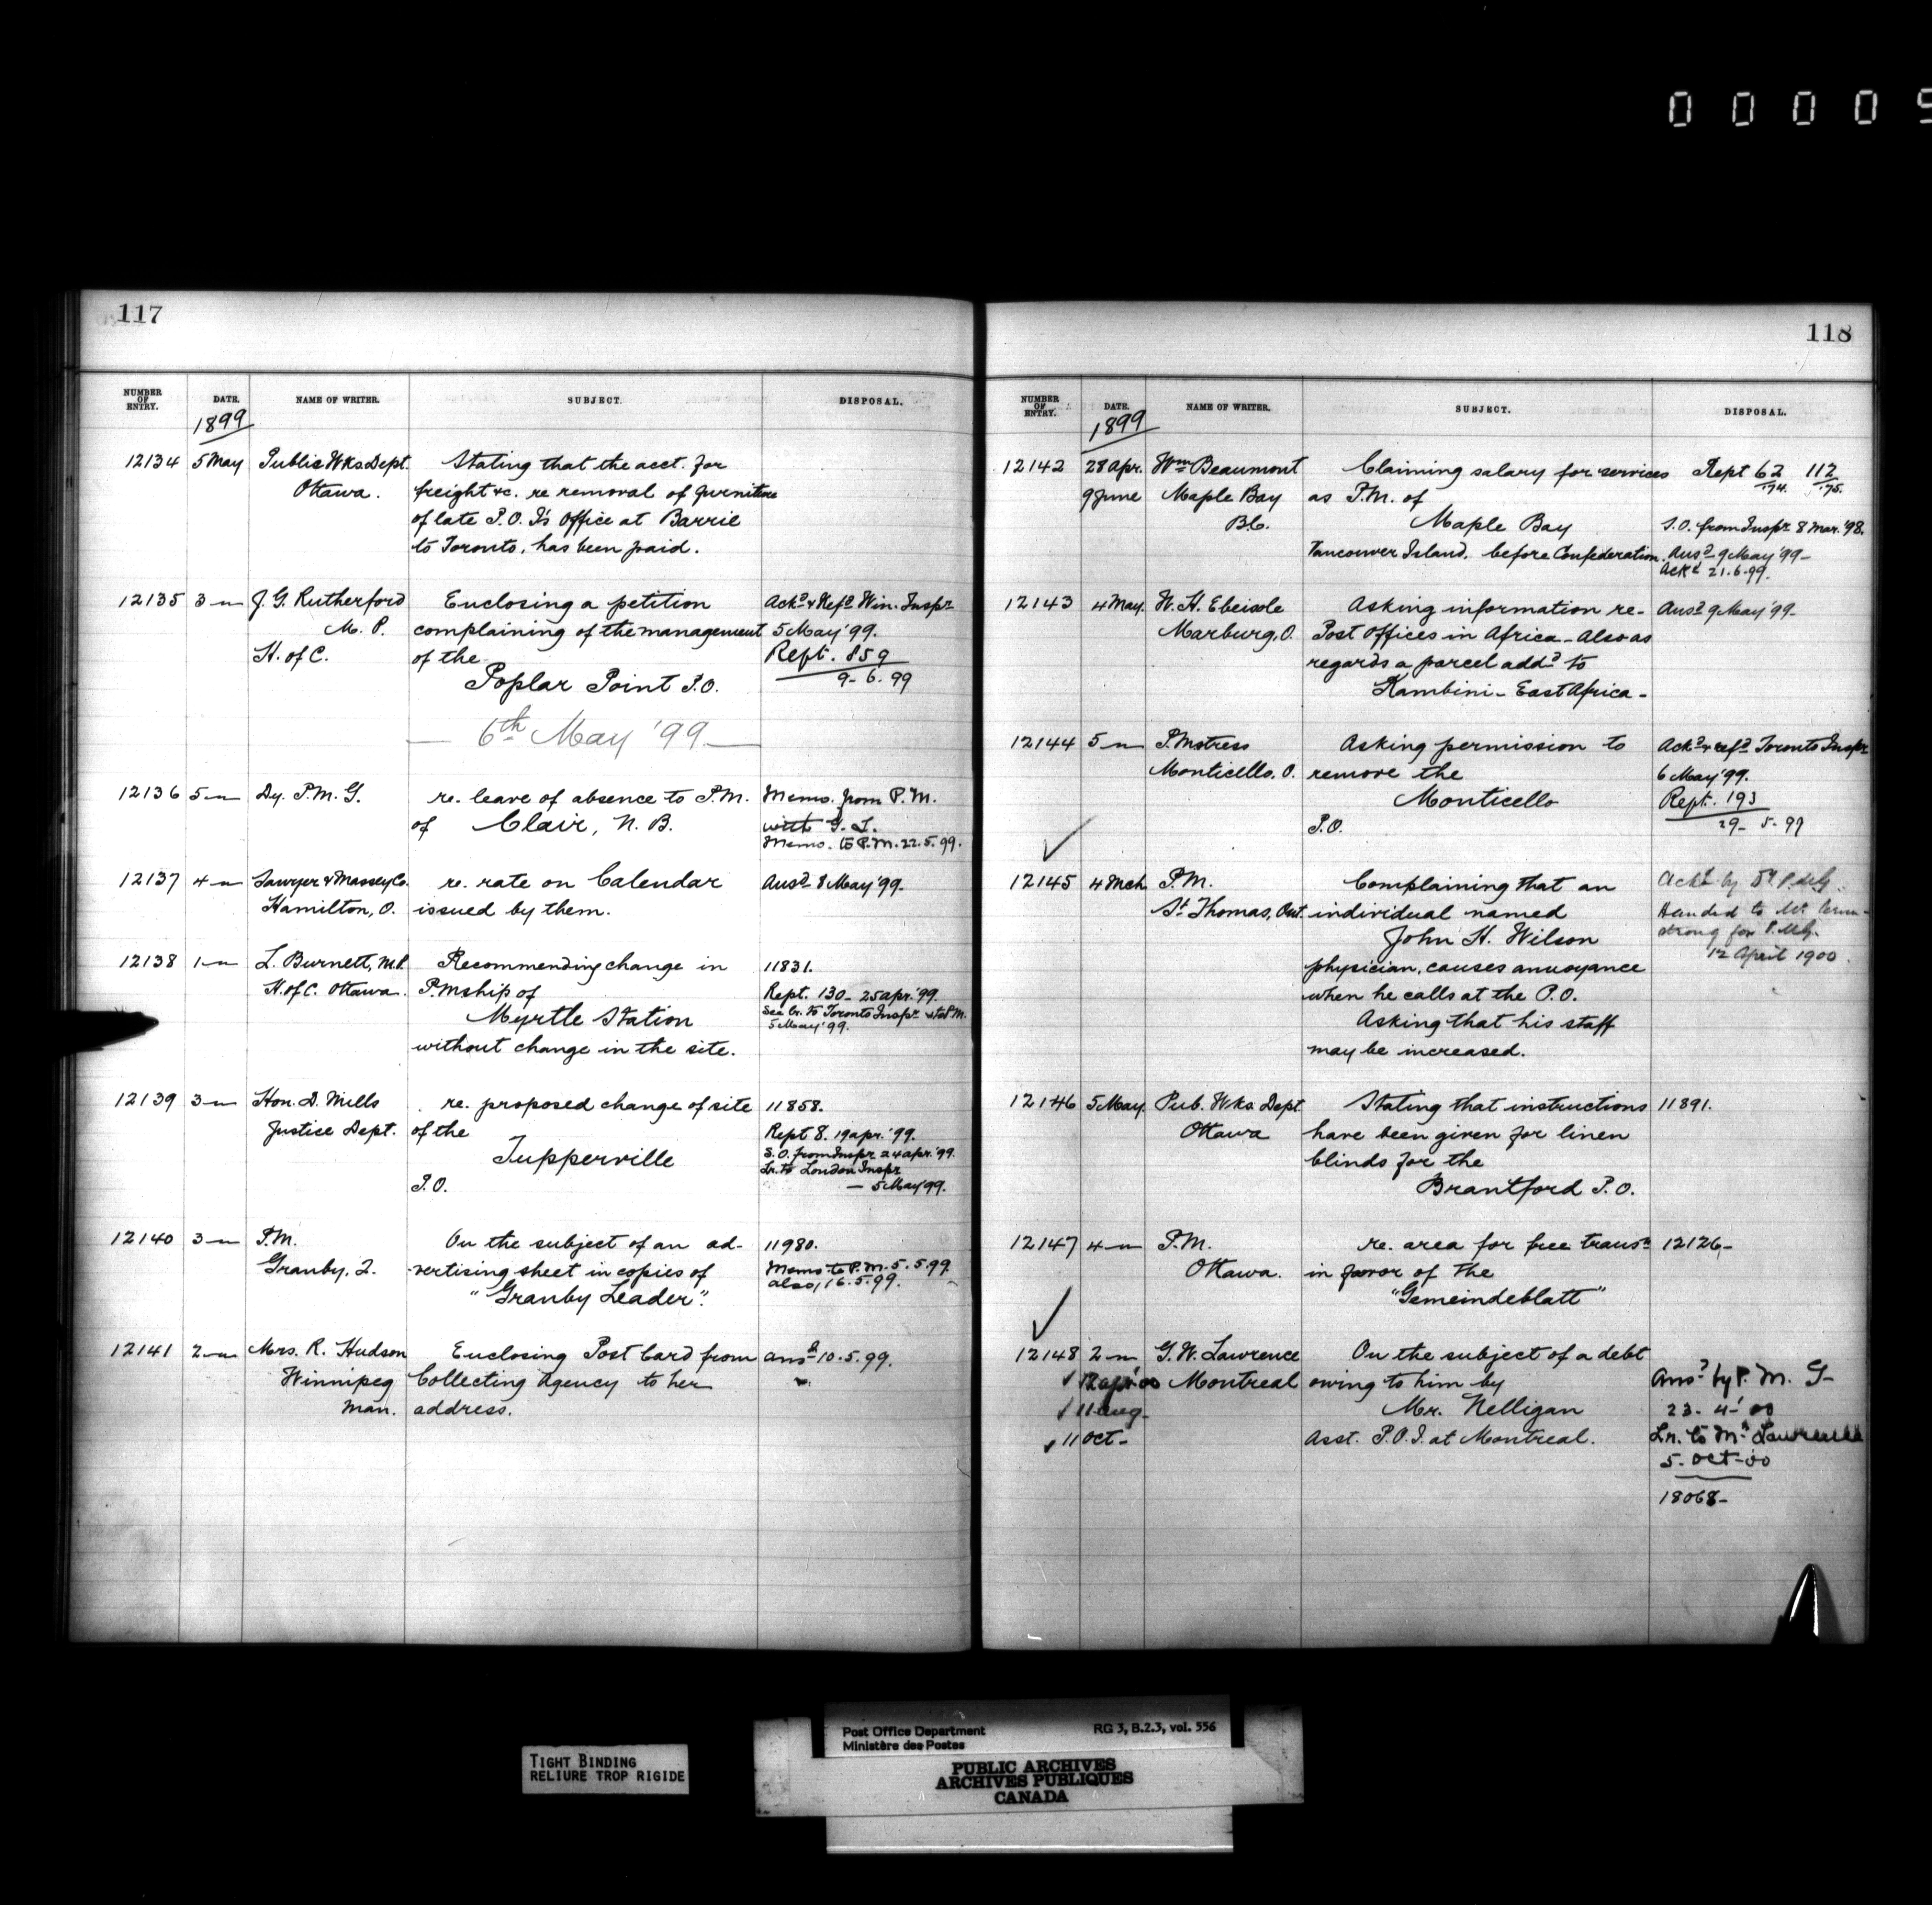 0 0 0 0 5
117
NUMBER OF ENTRY. DATE. NAME OF WRITER. SUBJECT. DISPOSAL.
1899
12134 5 May Public Wks Dept. Stating that the acct. for
Ottawa. freight &c. re removal of furniture
of late P.O. I's Office at Barrie
to Toronto, has been paid.
12135 3 " J. G. Rutherford Enclosing a petition Ackd & Refd Win. Inspr
M. P. complaining of the management 5 May '99.
H. of C. of the Rept. 859
Poplar Point P.O. 9-6-99
— 6th May '99 —
12136 5 " Dy. P.M.G. re. leave of absence to P.M. Memo. from P.M.
of Clair, N.B. with G. L.
Memo. to P.M. 22.5.99.
12137 4 " Sawyer & Massey Co. re. rate on Calendar Ansd 8 May '99-
Hamilton, O. issued by them.
12138 1 " L. Burnett, M.P. Recommending change in 11831.
H. of C. Ottawa. P.Mship of Rept. 130- 25 apr. '99.
Myrtle Station See Lr. to Toronto Inspr
5 May '99.
without change in the site.
12139 3 " Hon. D. Mills re. proposed change of site 11858.
Justice Dept. of the Rept 8. 19 apr. '99.
Tupperville S.O. from Inspr 24 apr. '99.
Lr. to London Inspr
P.O. — 5 May '99.
12140 3 " P.M. On the subject of an ad- 11980.
Granby, Q. vertising sheet in copies of Memo to P.M. 5.5.99
"Granby Leader". also, 16.5.99.
12141 2 " Mrs. R. Hudson Enclosing Post Card from ansd 10.5.99.
Winnipeg Collecting Agency to her
Man. address.
118
NUMBER OF ENTRY. DATE. NAME OF WRITER. SUBJECT. DISPOSAL.
1899
12142 28 Apr. Wm Beaumont Claiming salary for services Rept 62/'74. 112/'75.
9 June Maple Bay as P.M. of
B.C. Maple Bay S.O. from Inspr 8 Mar. '98.
Vancouver Island, before Confederation. Ansd 9 May '99-
Ackd 21.6.99.
12143 4 May. W. H. Ebeisole Asking information re- Ansd 9 May '99-
Marburg, O. Post Offices in Africa - Also as
regards a parcel addd to
Kambini - East Africa -
12144 5 " P.Mstress Asking permission to Ackd & refd Toronto Inspr
Monticello, O. remove the 6 May '99.
Monticello Rept. 193
P.O. 29-5-99
12145 4 Mch P.M. Complaining that an Ackd by Dy P.M.G.
St Thomas, Ont. individual named Handed to Mr Arm-
John H. Wilson strong for P.M.G.
physician, causes annoyance 12 April 1900.
when he calls at the P.O.
Asking that his staff
may be increased.
12146 5 May. Pub. Wks. Dept Stating that instructions 11891.
Ottawa have been given for linen
blinds for the
Brantford P.O.
12147 4 " P.M. re. area for free transn 12126-
Ottawa. in favor of the
"Gemeindeblatt"
12148 2 " G. W. Lawrence On the subject of a debt
12 apr '00 Montreal owing to him by Ansd by P.M.G-
11 Aug- Mr. Nelligan 23-4-'00
11 Oct- Asst. P.O.I. at Montreal. Lr. to Mr Lawrence
5-Oct-00
18068-
TIGHT BINDING
RELIURE TROP RIGIDE
Post Office Department RG 3, B.2.3, vol. 556
Ministère des Postes
PUBLIC ARCHIVES
ARCHIVES PUBLIQUES
CANADA